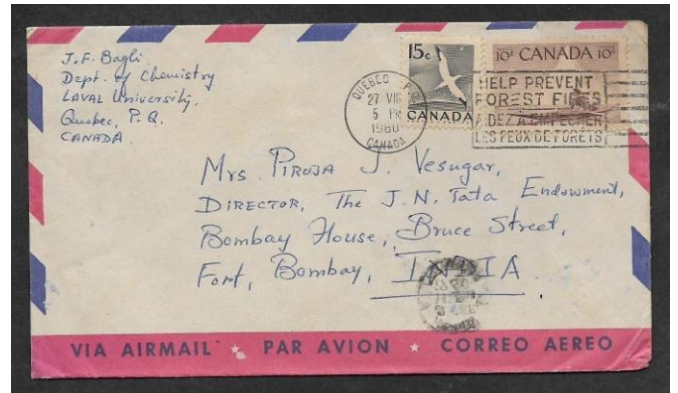 J.F. Bagli
Dept. of Chemistry
LAVAL University,
Quebec, P.Q.
CANADA
15c
CANADA
10¢ CANADA 10¢
QUEBEC P.Q.
27 VIII
5 PM
1960
CANADA
HELP PREVENT
FOREST FIRES
AIDEZ À EMPECHER
LES FEUX DE FORETS
Mrs. PIROJA J. Vesugar,
DIRECTOR, The J.N. Tata Endowment,
Bombay House, Bruce Street,
Fort, Bombay, INDIA
VIA AIRMAIL * PAR AVION * CORREO AEREO